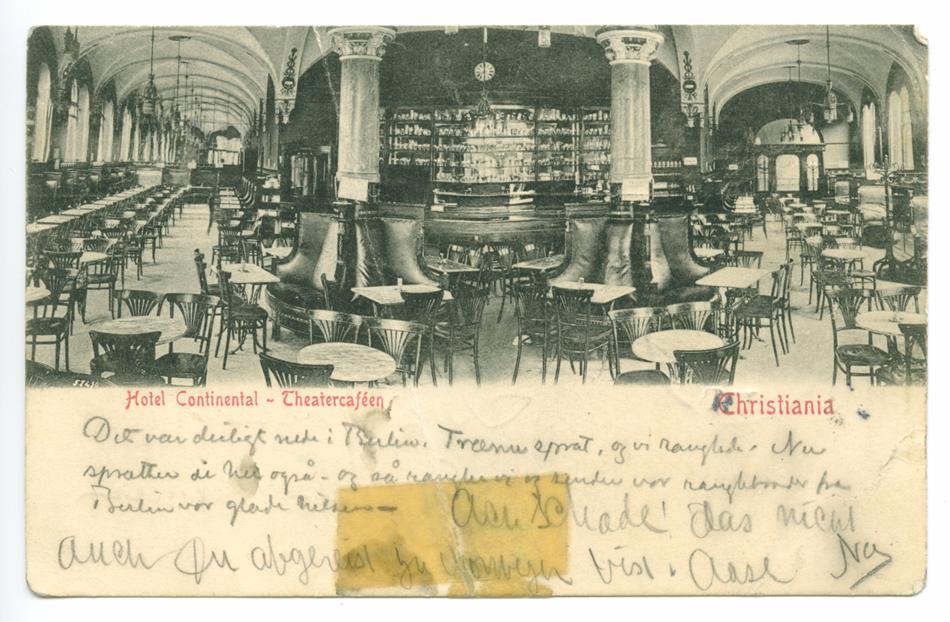 5248
Hotel Continental - Theatercaféen
Christiania
Det var deiligt nede i Berlin. Trærne sprat, og vi ranglede. Nu
spratter de her også - og så rangler vi og sender vor ranglebroder fra
Berlin vor glade hilsen —
Ach Schade! das nicht
auch Du abgereist zu Norwegen bist. Aase